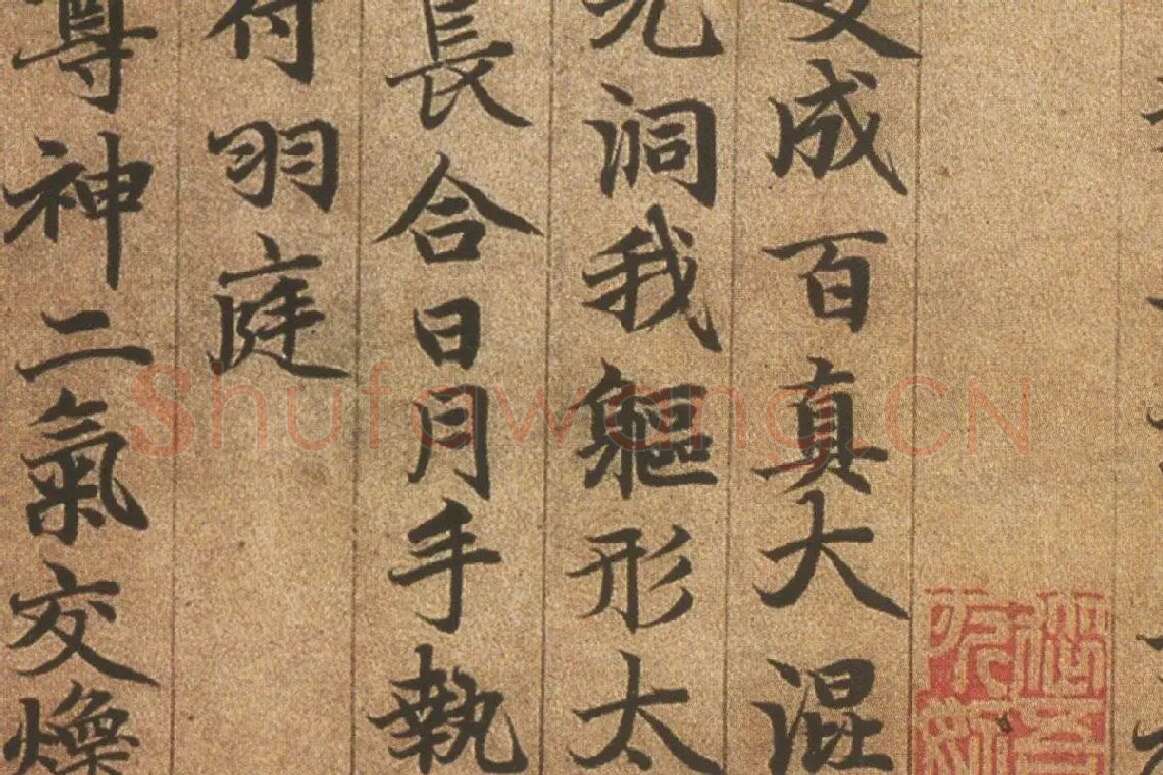 交成百真大混
光洞我軀形太
長合日月手執
符羽庭
尊神二氣交燥
Shufawang.CN